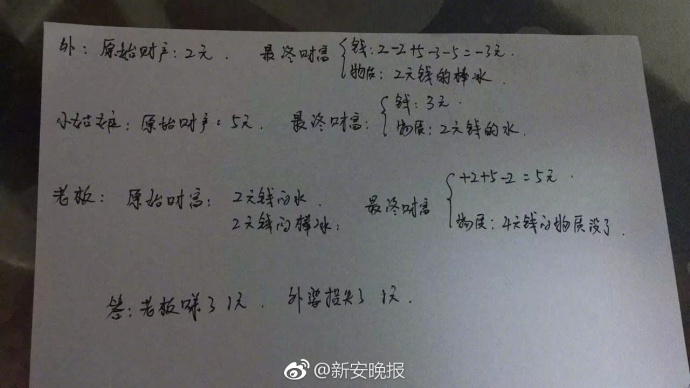 外：原始财产：2元． 最终财富 { 钱：2-2+5-3-5=-3元．
物质：2元钱的棒冰．
小菇菇：原始财产：5元． 最终财富： { 钱：3元．
物质：2元钱的水．
老板：原始财富： 2元钱的水 最终财富 { +2+5-2=5元．
2元钱的棒冰； 物质：4元钱的物质没了．
答：老板赚了1元． 外婆损失了1元．
@新安晚报